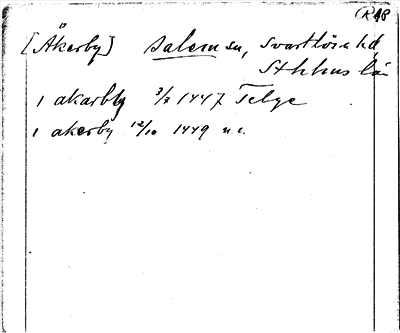 R 48
[Åkerby] Salem sn, Svartlösa hd,
Sthlms län
1 akarby 3/2 1447 Telge
1 akerby 12/10 1449 n.c.